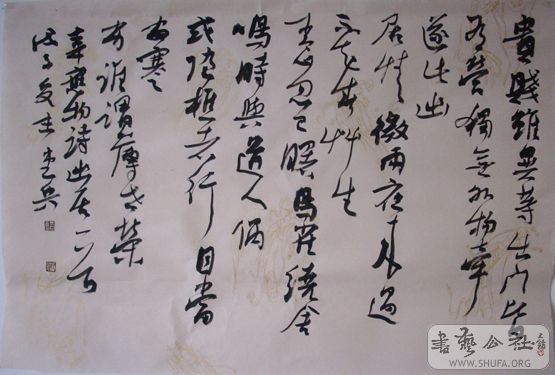 貴賤雖異等出门皆
有營獨無外物牽
遂此幽
居情微雨夜来過
不知春艸生
青山忽已曙鳥雀繞舍
鳴時與道人偶
或隨樵者行自當
安蹇
劣誰謂薄世榮
韋應物詩幽居一首
戊子夏
書藝公社
WWW.SHUFA.ORG